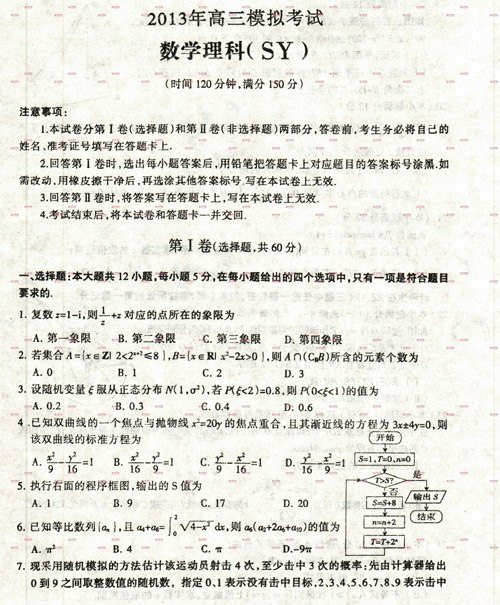 2013年高三模拟考试
数学理科(SY)
(时间120分钟,满分150分)
注意事项:
1.本试卷分第Ⅰ卷(选择题)和第Ⅱ卷(非选择题)两部分,答卷前,考生务必将自己的
姓名、准考证号填写在答题卡上.
2.回答第Ⅰ卷时,选出每小题答案后,用铅笔把答题卡上对应题目的答案标号涂黑.如
需改动,用橡皮擦干净后,再选涂其他答案标号.写在本试卷上无效.
3.回答第Ⅱ卷时,将答案写在答题卡上,写在本试卷上无效.
4.考试结束后,将本试卷和答题卡一并交回.
第Ⅰ卷(选择题,共60分)
一、选择题:本大题共12小题,每小题5分,在每小题给出的四个选项中,只有一项是符合题目
要求的.
1. 复数z=1-i,则1/z+z对应的点所在的象限为
A. 第一象限 B. 第二象限 C. 第三象限 D. 第四象限
2. 若集合A={x∈Z| 2<2ˣ⁺²≤8},B={x∈R| x²-2x>0},则A∩(C_RB)所含的元素个数为
A. 0 B. 1 C. 2 D. 3
3. 设随机变量ξ服从正态分布N(1,σ²),若P(ξ<2)=0.8,则P(0<ξ<1)的值为
A. 0.2 B. 0.3 C. 0.4 D. 0.6
4. 已知双曲线的一个焦点与抛物线x²=20y的焦点重合,且其渐近线的方程为3x±4y=0,则
该双曲线的标准方程为
A. x²/9-y²/16=1 B. x²/16-y²/9=1 C. y²/9-x²/16=1 D. y²/16-x²/9=1
5. 执行右面的程序框图,输出的S值为
A. 1 B. 9 C. 17 D. 20
开始
S=1,T=0,n=0
T>S?
是
否
输出S
S=S+8
结束
n=n+2
T=T+2ⁿ
6. 已知等比数列{aₙ},且a₄+a₈=∫₀²√(4-x²)dx,则a₆(a₂+2a₆+a₁₀)的值为
A. π² B. 4 C. π D. -9π
7. 现采用随机模拟的方法估计该运动员射击4次,至少击中3次的概率:先由计算器给出
0到9之间取整数值的随机数, 指定0、1表示没有击中目标,2、3、4、5、6、7、8、9表示击中